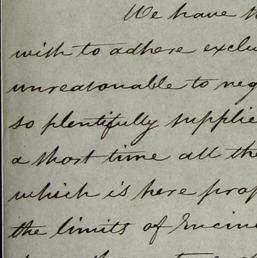 We have
wish to adhere exclu
unreasonable to neg
so plentifully supplie
a short time all the
which is here prop
the limits of Encin